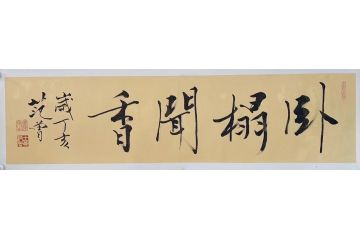 卧榻聞香
歲丁亥
范曾